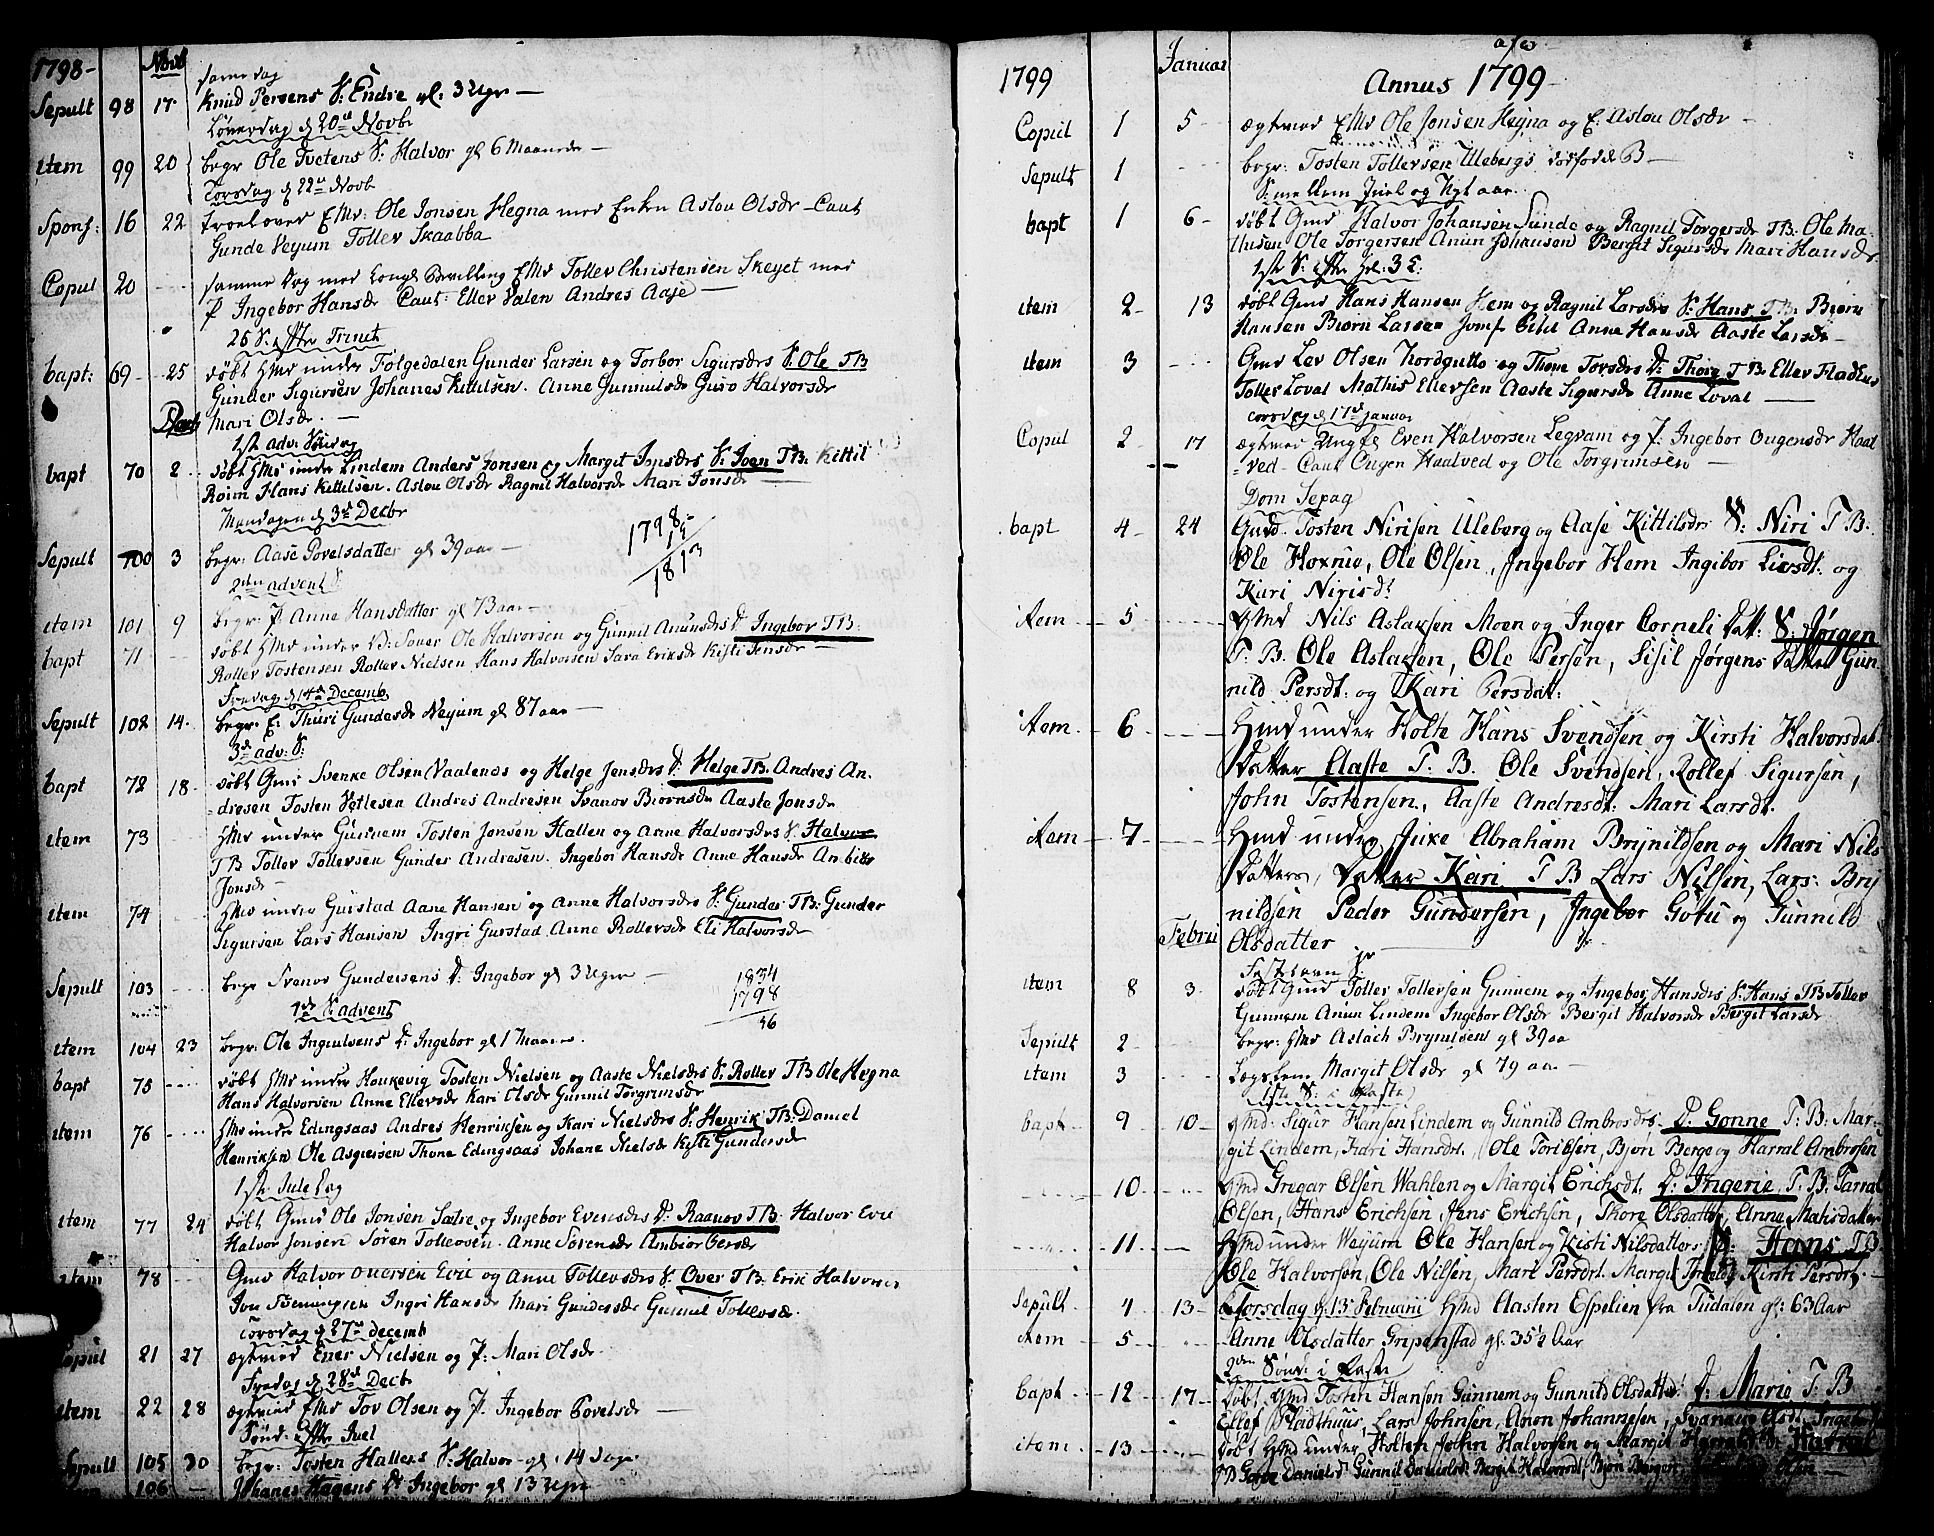 1798- Novb
samme dag
Sepult 98 17 Knud Persens S: Endre gl: 3 Uger —
Løverdag d 20de Novb.
item 99 20 begr Ole Tvetens S: Halvor gl 6 Maaneder —
Torsdag d 22de Novb
Spons: 16 22 troelovet EMd: Ole Jonsen Hegna med Enken Aslou Olsdr — Caut
Gunde Veyum Tollev Skaabba
Copul 20 samme Dag med Kongl Bevilling EMd Tollev Christensen Skeyet med
P Ingebor Hansdr Caut: Ellev Valen Andres Aase —
25 S. efter Trinit
bapt: 69 25 døbt HMd under Følgedalen Gunder Larsen og Torbor Sigursdrs S. Ole TB
Gunder Sigursen Johanes Kittilsen. Anne Gunnulsdr Guro Halvorsdr
Decb Mari Olsdr. —
1ste adv: Søndag
bapt 70 2 døbt HMd under Lindem Anders Jonsen og Margit Jonsdrs S: Joen TB: Kittil
Roim Hans Kittilsen. Aslou Olsdr Ragnil Halvorsdr Mari Jonsdr —
Mandagen d 3de Decbr
Sepult 100 3 begr. Aase Povelsdatter gl 39 aar —
1798
15
1813
2den advent S
item 101 9 begr. P Anne Hansdatter gl 73 aar —
bapt 71 døbt HMd under B: Soner Ole Halvorsen og Gunnil Anunsdrs D Ingebor TB:
Rollev Tostensen Rollev Nielsen Hans Halvorsen Sara Eriksdr Kisti Jensdr —
Fredag d 14de Decemb
Sepult 102 14. begr. E. Thuri Gundersdr Neyum gl 87 aar —
3de adv: S:
bapt 72 18 døbt Gmd Svenke Olsen Vaalenes og Helge Jensdrs D. Helge TB. Andres An-
dresen Tosten Vetlesen Andres Andresen Svanov Biørnsdr Aaste Jonsdr
item 73 HMd under Gunnem Tosten Jonsen Hallen og Anne Halvorsdrs S. Halvor
TB Tollev Tollevsen Gunder Andresen. Ingebor Hansdr Anne Hansdr Ambiør
Jonsdr —
item 74 HMd under Gurstad Aane Hansen og Anne Halvorsdrs S. Gunder TB: Gunder
Sigursen Lars Hansen Ingri Gurstad Anne Rollevsdr Eli Halvorsdr
Sepult 103 begr Svenov Gundersens D. Ingebor gl 3 Uger —
1834
1798
36
4de S. advent
item 104 23 begr: Ole Ingulvens D. Ingebor gl 1 Maaned.
bapt 75 døbt HMd under Houkevig Tosten Nielsen og Aaste Nielsdrs S. Rollev TB Ole Hegna
Hans Halvorsen Anne Ellevsdr Kari Olsdr Gunnil Torgrimsdr
item 76 HMd under Edingsaas Andres Henriksen og Kari Nielsdrs S. Henrik TB: Daniel
Henriksen Ole Asgiersen Thone Edingsaas Johane Nielsdr Kisti Gundersdr
1ste Jule Dag
item 77 24 døbt Gmd Ole Jonsen Sætre og Ingebor Evensdrs D. Raanov TB. Halvor Evie
Halvor Jonsen Søren Tollevsen. Anne Sørensdr Ambiør Gersdr
item 78 Gmd Halvor Oversen Evie og Anne Tollevsdrs S. Over TB: Erik Halvorsen
Jon Svennigsen Ingri Hansdr Mari Gundersdr Gunnil Tollevsdr
Torsdag d 27de decemb
Copul 21 27 ægteviet Ener Nielsen og P: Mari Olsdr.
Fredag d 28de Decb
item 22 28 ægteviet EMd Tov Olsen og P. Ingebor Povelsdr —
Sønd. efter Juel
Sepult 105 30 begr. Tosten Hallens S: Halvor gl. 14 dage
106 — Johanes Hagens D Ingebor gl 13 Uger
1799 Januar
Annus 1799
Copul 1 5 ægteviet EMd Ole Jonsen Hegna og E. Aslou Olsdr —
Sepult 1 begr: Tosten Tollevsen Ulebergs dødfødde B —
S: mellem Juel og Nyt aar.
bapt 1 6 døbt Gmd Halvor Johansen Sunde og Ragnil Torgersdr TB. Ole Ma-
thisen Ole Torgersen Anun Johansen Bergit Sigursdr Mari Hansdr
1ste S: efter Hel: 3 K:
item 2 13 døbt Gmd Hans Hansen Hem og Ragnil Larsdrs S: Hans TB. Biørn
Hansen Biørn Larsen Jomf Anne Hansdr Aaste Larsdr —
item 3 Gmd Lev Olsen Nordgutto og Thone Torsdrs D: Thore TB. Ellev Fladhus
Tollev Loval Mathis Ellevsen Aaste Sigursdr Anne Loval —
Torsdag d 17de Januar
Copul 2 17 ægteviet Ungk Even Halvorsen Legvam og P. Ingebor Ougensdr Haat
ved — Caut Ougen Haatved og Ole Torgrimsen —
Dom Sexag
bapt 4 24 Gmd. Tosten Nirisen Uleberg og Aase Kittilsdrs S: Niri T B:
Ole Hoxnio, Ole Olsen, Ingebor Hem Ingibor Livsdt: og
Kari Nirisdt
Item 5 Hmd Nils Aslaksen Moen og Inger Corneli Datt: S: Jørgen
T. B. Ole Aslaksen, Ole Persen, Sisil Jørgens Datter Gun
nild Persdt: og Kari Persdat:
Item. 6 Hmd under Holte Hans Svendsen og Kirsti Halvorsdat
Datter Aaste T. B. Ole Svendsen, Rollef Sigursen,
John Tostensen, Aaste Andresdt: Mari Larsdt.
Item 7 Hmd under Juxe Abraham Brynildsen og Mari Nils
Datters, Datter Kari T B Lars Nilsen, Lars Bry
nildsen Peder Gundersen, Ingebor Gotu og Gunnild
Februi Olsdatter
Fastelavn S.
item 8 3. døbt Gmd Tollev Tollevsen Gunnem og Ingebor Hansdrs S. Hans TB Tollev
Gunnem Anun Lindem Ingebor Olsdr Bergit Halvorsdr Bergit Larsdr
Sepult 2 begr: HMd Aslach Brynulsen gl 39 aa
item 3 Margit Olsdr gl 79 aar —
1ste S: i Faste
bapt 9 10 Hmd: Sigur Hansen Lindem og Gunnild Ambrosdrs. D. Gonne T. B: Mar-
git Lindem, Kari Hansdt. Ole Toriksen, Bjørn Berge og Harral Ambrosen
10 Hmd Gregar Olsen Wahlen og Margit Erichsdt. D. Ingerie T. B. Tarral
Olsen, Hans Erichsen, Jens Erichsen, Thore Olsdatter, Anne Matisdatter
11 Hmd under Weyum Ole Hansen og Kisti Nilsdatters S. Hans TB
Ole Halvorsen, Ole Nilsen, Mari Persdt. Margit Kirsti Persdt.
Sepult 4 13 Torsdag d. 13 Februarii Hmd Aasten Espelien fra Tudalen gl: 63 Aar
Item 5 Anne Olsdatter Gripenstad gl 35½ Aar
2den Sønd i Faste
bapt 12 17 Døbt Hmd Tosten Hansen Gunnem og Gunnild Olsdatter D. Marie T. B
Ellef Fladthuus, Lars Johnsen, Anon Johannesen, Svanaug Ingebor
item 13 Døbt Hmd under Holten John Halvorsen og Margit S. Harral
TB Danielsdr Gunnil Danielsdr Bergit Halvorsdt, Bjørn Olsen —